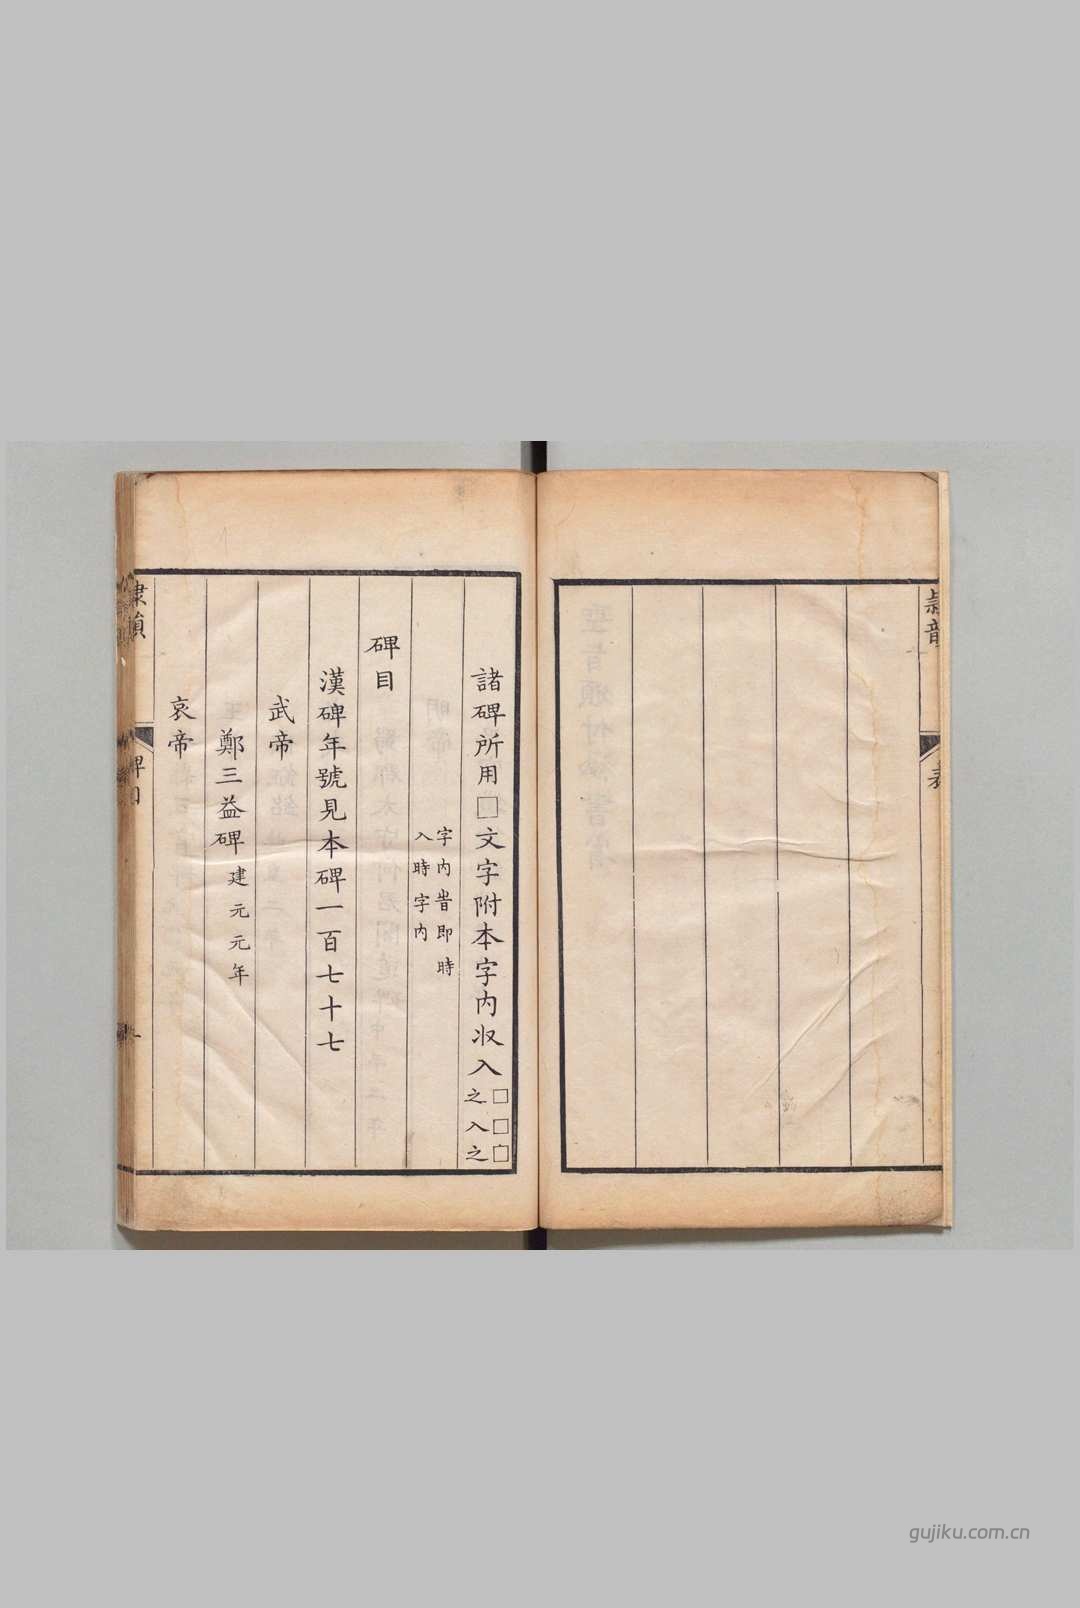 隸韻
表
諸碑所用□文字附本字内収入□□□之入之
字内旹即時
入時字内
碑目
漢碑年號見本碑一百七十七
武帝
鄭三益碑建元元年
哀帝
隸韻
碑目
一
gujiku.com.cn